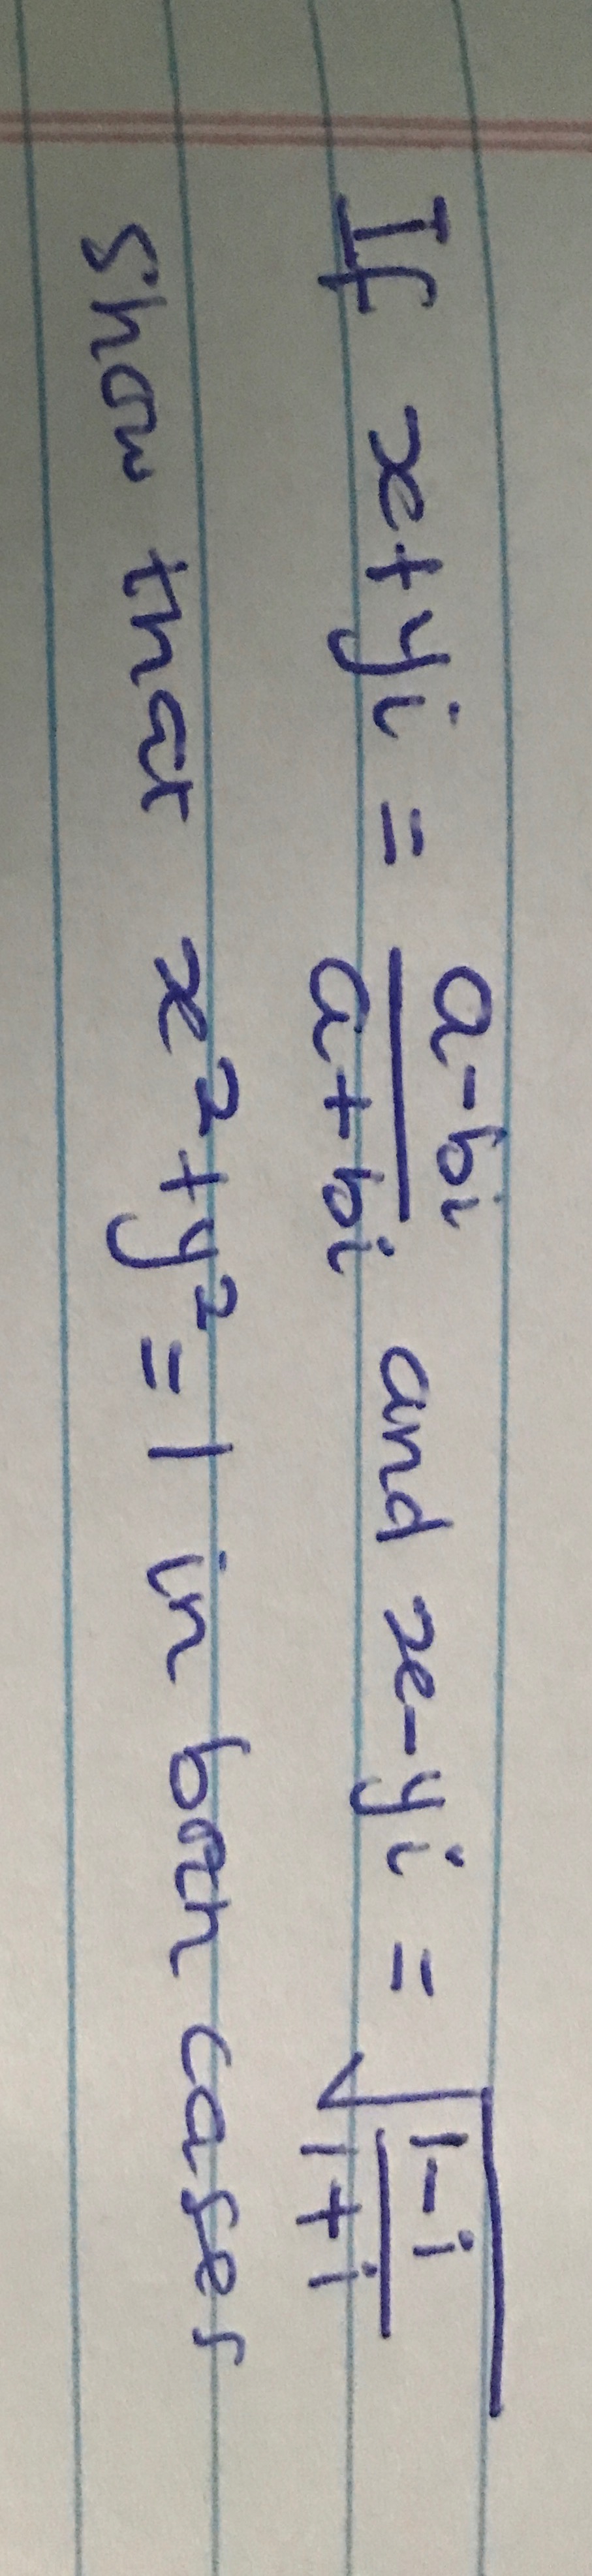 If x+yi = a-bi/a+bi and x-yi = √1-i/1+i
show that x²+y²=1 in both cases